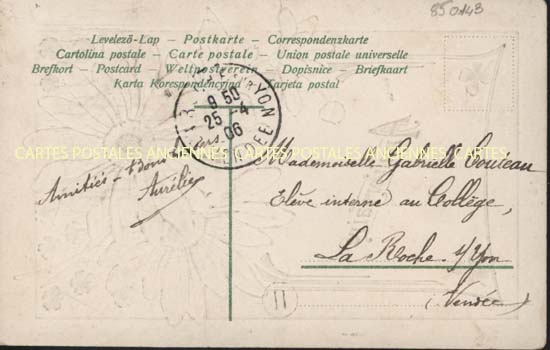 850A43
Levelező-Lap – Postkarte – Correspondenzkarte
Cartolina postale – Carte postale – Union postale universelle
Brefkort – Postcard – Weltpostverein – Dopisnice – Briefkaart
Karta Korespondencyjna – Tarjeta postal
YON
9 50
25 - 4
06
VENDÉE
CARTES POSTALES ANCIENNES CARTES POSTALES ANCIENNES CARTES POSTALES ANCIENNES
Amitiés –
Aurélie
Mademoiselle Gabrielle
Elève interne au Collège,
La Roche s/Yon
(Vendée)
11